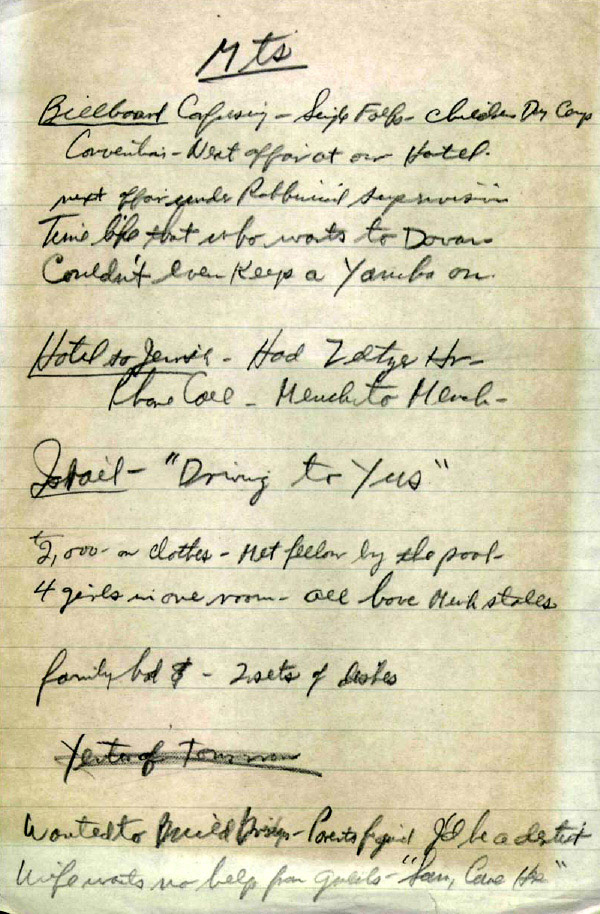 Mts
Billboard Confusing - Single Folks - children Day Camp
Convention - Next affair at our Hotel.
next affair under Rabbinical supervision
Time life that who wants to Doven
Couldn't even Keep a Yamika on.
Hotel so Jewish - Had Zeltzer
Phone Call - Mench to Mench -
Israel - "Driving to Yus"
2,000 - on clothes - Met fellow by the pool -
4 girls in one room - all have Mink stoles
family had $ - 2 sets of dishes
Yenta of Tomorrow
Wanted to Build Bridges - Parents figured I'd be a dentist
Wife wants no help from guests - "Sam, Come"